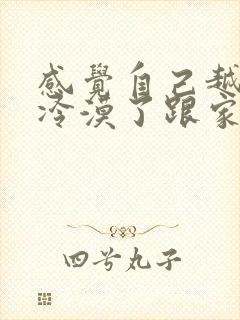 感覺自己越
冷漠了跟家
四兮丸子